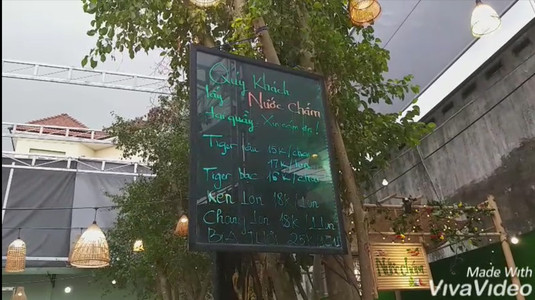 Quý Khách
lấy Nước Chấm
tại quầy Xin cảm ơn!
Tiger nâu 15k/chai
17k/lon
Tiger bạc 16k/chai
Ken Lon 18k/Lon
Chang Lon 18k/1 Lon
25k
Nước chấm
Made With
VivaVideo